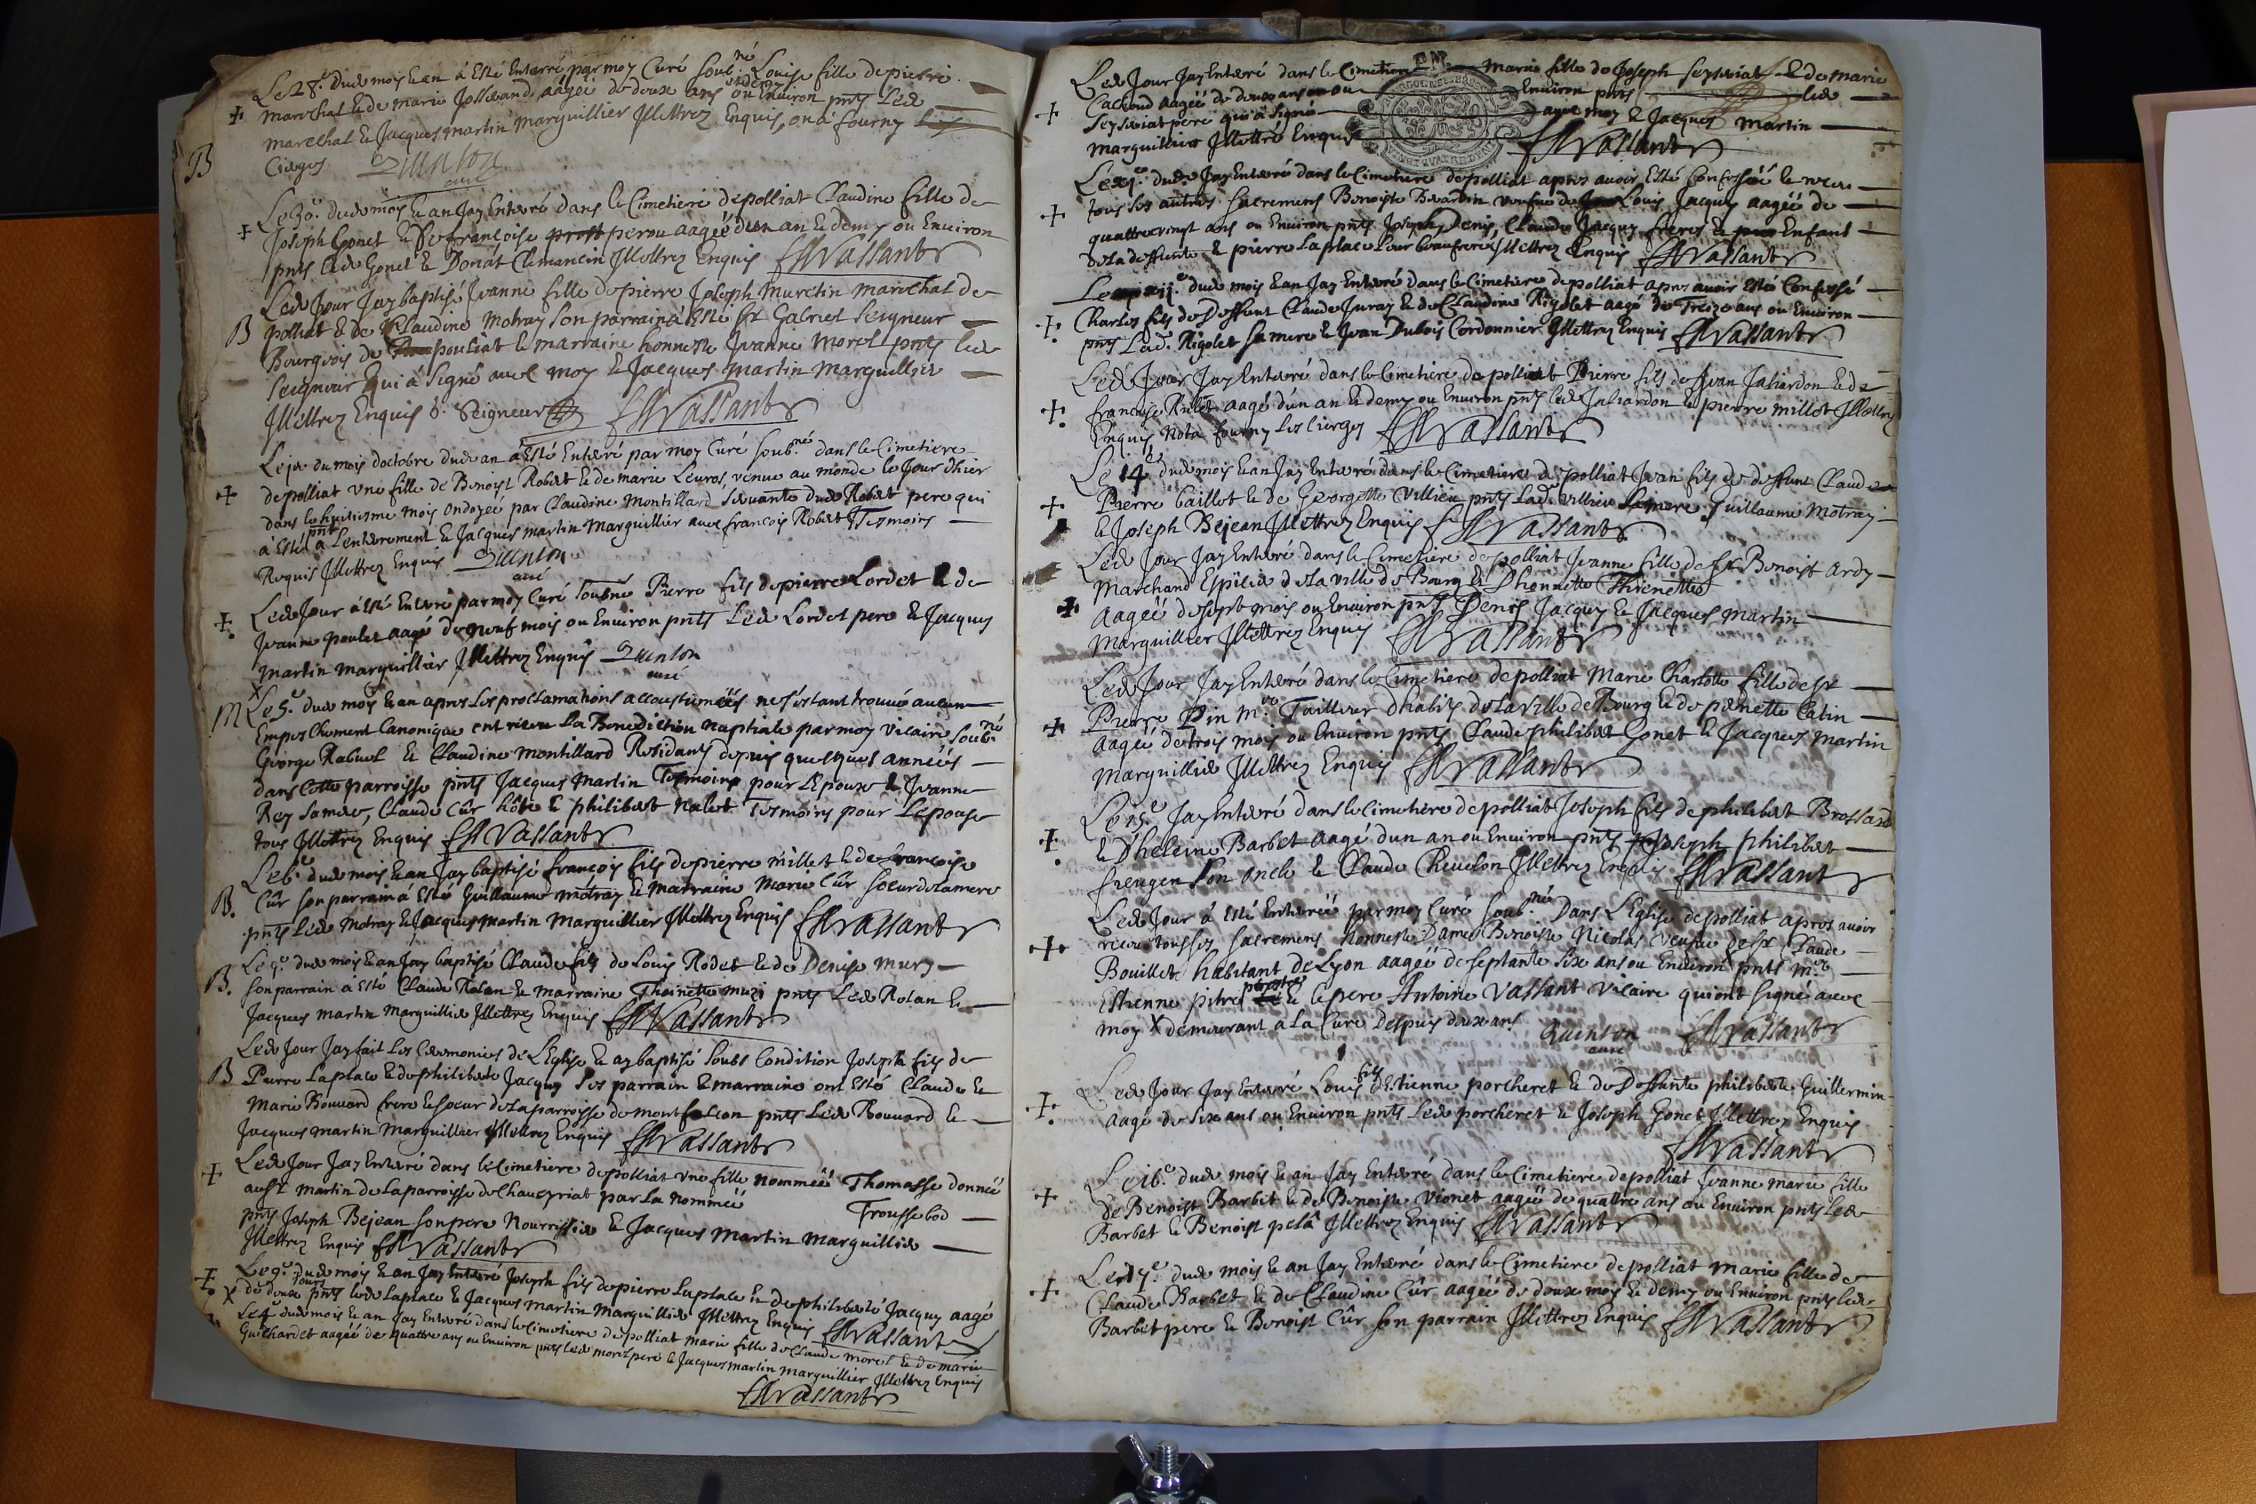 Le 28e dud mois & an à Esté Enterré par moy Curé soub.né Louise fille de pierre
marechal & de marie Josserand aagée de deux ans et demy ou Environ pnts Led
marechal & Jacques martin marguillier Illettrez Enquis, on à fourny
Cierges Quinton
curé
B
Le 30e dud mois & an Jay Enterré dans le Cimetiere de polliat Claudine fille de
Joseph Gonet & de francoise perou aagée d'un an & demy ou Environ
pnts led Gonet & Donat Clemancin Illettrez Enquis F A Vassant
Led Jour Jay baptisé Jeanne fille de pierre Joseph Muretin marechal de
B polliat & de Claudine Motray son parrain à Esté Sr Gabriel Seigneur
Bourgeois de pouliat & marraine honneste Jeanne Morel pnts led
Seigneur qui à signé avec moy & Jacques martin Marguillier
Illettrez Enquis G. Seigneur F A Vassant
Le jer du mois doctobre dud an à Esté Enterré par moy Curé soub.né dans le Cimetiere
de polliat une fille de Benoist Robert & de marie Leuros, venue au monde le Jour dhier
dans le huitiesme mois ondoyée par Claudine Montillard Servante dud Robert pere qui
à Esté pnt à Lenterrement & Jacques martin marguillier avec francois Robert Tesmoins
Requis Illettrez Enquis Quinton
curé
Led Jour à Esté Enterré par moy Curé soubné Pierre fils de pierre Lordet & de
Jeanne poulet aagé de neuf mois ou Environ pnts Led Lordet pere & Jacques
martin marguillier Illettrez Enquis Quinton
curé
M Le 5e dud mois & an apres les proclamations accoustumées ne s'estant trouvé aucun
Empeschement Canonique ont receu La Benediction Nuptiale par moy vicaire soub.né
George Rabuel & Claudine montillard Residants depuis quelques années
dans Cette parroisse pnts Jacques martin Tesmoins pour Lepoux & Jeanne
Rey sa mere, Claude Cûr hôte & philibert nalet Tesmoins pour Lepouse
tous Illettrez Enquis F A Vassant
Le 6e dud mois & an Jay baptisé francois fils de pierre millet & de francoise
B. Cûr son parrain à Esté Guillaume motray & marraine Marie Cûr soeur de la mere
pnts Led Motray & Jacques martin Marguillier Illettrez Enquis F A Vassant
Le 9e dud mois & an Jay baptisé Claude fils de Louis Rodet & de Denise Mury
B. son parrain a Esté Claude Rolan & marraine Thoinette muzi pnts Led Rolan &
Jacques martin Marguillier Illettrez Enquis F A Vassant
Led Jour Jay fait les Ceremonies de LEglise & ay baptisé soubs Condition Joseph fils de
B Pierre Laplace & de philiberte Jacquy ses parrain & marraine ont Esté Claude &
Marie Bouvard frere & soeur de la parroisse de montfalcon pnts Led Bouvard &
Jacques martin Marguillier Illettrez Enquis F A Vassant
Led Jour Jay Enterré dans le Cimetiere de polliat une fille nommée Thomasse donnée
au sr martin de La parroisse de Chaveyriat par La nommée Troussebod
pnts Joseph Bejean son pere Nourrissier & Jacques Martin marguillier
Illettrez Enquis F A Vassant
Le 9e dud mois & an Jay Enterré Joseph fils de pierre Laplace & de philiberte Jacquy aagé
X de deux jours pnts led Laplace & Jacques martin Marguillier Illettrez Enquis F A Vassant
Led dud mois & an Jay Enterré dans le Cimetiere de polliat marie fille de Claude Morel & de marie
Guichardet aagée de quattre ans ou Environ pnts led morel pere & Jacques martin marguillier Illettrez Enquis
F A Vassant
Led Jour Jay Enterré dans le Cimetiere Marie fille de Joseph seyssiat & de marie
aagée de deux ans ou Environ pnts led
Seyssiat pere qui à signé avec moy & Jacques martin
marguillier Illettré Enquis F A Vassant
dud. Jay Enterré dans le Cimetiere de polliat apres avoir Esté Confessée & receu
tous les autres sacremens Benoiste Bevardin veufue de Louis Jacquy aagée de
quattrevingt ans ou Environ pnts Joseph, Denis, Claude Jacquy freres & Enfant
de la deffunte & pierre Laplace Leur beaufrere Illettrez Enquis F A Vassant
Le dud mois & an Jay Enterré dans le Cimetiere de polliat apres avoir Esté Confessé
Charles fils de Deffunt Claude Juray & de Claudine Rigolet aagé de Treize ans ou Environ
pnts Lad. Rigolet sa mere & Jean Dubois Cordonnier Illettrez Enquis F A Vassant
Led Jour Jay Enterré dans le Cimetiere de polliat Pierre fils de Jean Jahardon & de
francoise aagé d'un an & demy ou Environ pnts led Jahardon & pierre millet Illettrez
Enquis Nota fourny les Cierges F A Vassant
Le 14e dud mois & an Jay Enterré dans le Cimetiere de polliat Jean fils de deffunt Claude
Pierre baillot & de Georgette Villien pnts Lad Villien sa mere Guillaume Motray
& Joseph Bejean Illettrez Enquis F A Vassant
Led Jour Jay Enterré dans le Cimetiere de polliat Jeanne fille de Sr Benoist Ardy
Marchand Espicier de la ville de Bourg & D'honnette Thienette
aagée de sept mois ou Environ pnts Denis Jacquy & Jacques martin
Marguillier Illettrez Enquis F A Vassant
Led Jour Jay Enterré dans le Cimetiere de polliat Marie Charlotte fille de Sr
Pierre Pin Me Tailleur dhabits de la ville de Bourg & de pernette Catin
aagée de trois mois ou Environ pnts Claude philibert Gonet & Jacques Martin
Marguillier Illettrez Enquis F A Vassant
Le 15e Jay Enterré dans le Cimetiere de polliat Joseph fils de philibert Brossard
& D'heleine Barbet aagé dun an ou Environ pnts Joseph philibert
son oncle & Claude Chevelon Illettrez Enquis F A Vassant
Led Jour à Esté Enterrée par moy Curé soub.né Dans LEglise de polliat apres avoir
receu tous ses sacremens honneste Dame Benoiste Nicolas veufue de Sr Claude
Bouillet habitant de Lyon aagée de septante six ans ou Environ pnts Me
Estienne pitre prestre & le pere Antoine Vassant Vicaire qui ont signé avec
moy X demeurant à la Cure Despuis deux ans Quinton F A Vassant
curé
Led Jour Jay Enterré Louis fils d'Etienne porcheret & de Deffunte philiberte Guillermin
aagé de six ans ou Environ pnts Led porcheret & Joseph Gonet Illettrez Enquis
F A Vassant
Le 16e dud mois & an Jay Enterré dans le Cimetiere de polliat Jeanne marie fille
de Benoist Barbet & de Benoiste Vionet aagée de quattre ans ou Environ pnts Led
Barbet & Benoist pelâ Illettrez Enquis F A Vassant
Le 17e dud mois & an Jay Enterré dans le Cimetiere de polliat Marie fille de
Claude Barbet & de Claudine Cûr aagée de deux mois & demy ou Environ pnts led
Barbet pere & Benoist Cûr son parrain Illettrez Enquis F A Vassant